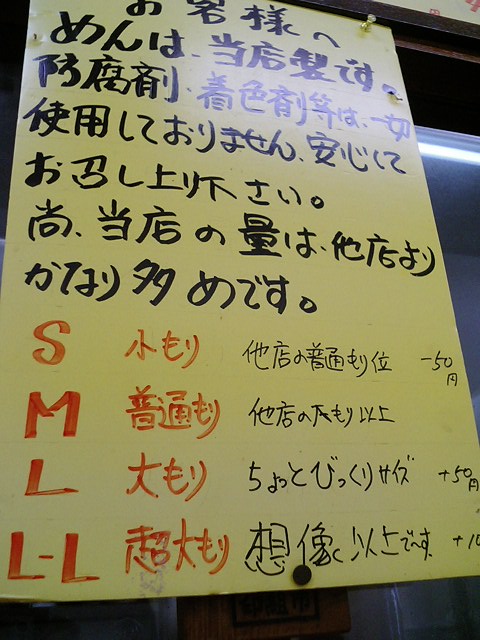 お客様へ
めんは、当店製です。
防腐剤、着色剤等は、一切
使用しておりません、安心して
お召し上り下さい。
尚、当店の量は、他店より
かなり多めです。
S 小もり 他店の普通もり位 -50円
M 普通もり 他店の大もり以上
L 大もり ちょっとびっくりサイズ +50円
L-L 超大もり 想像以上です +10